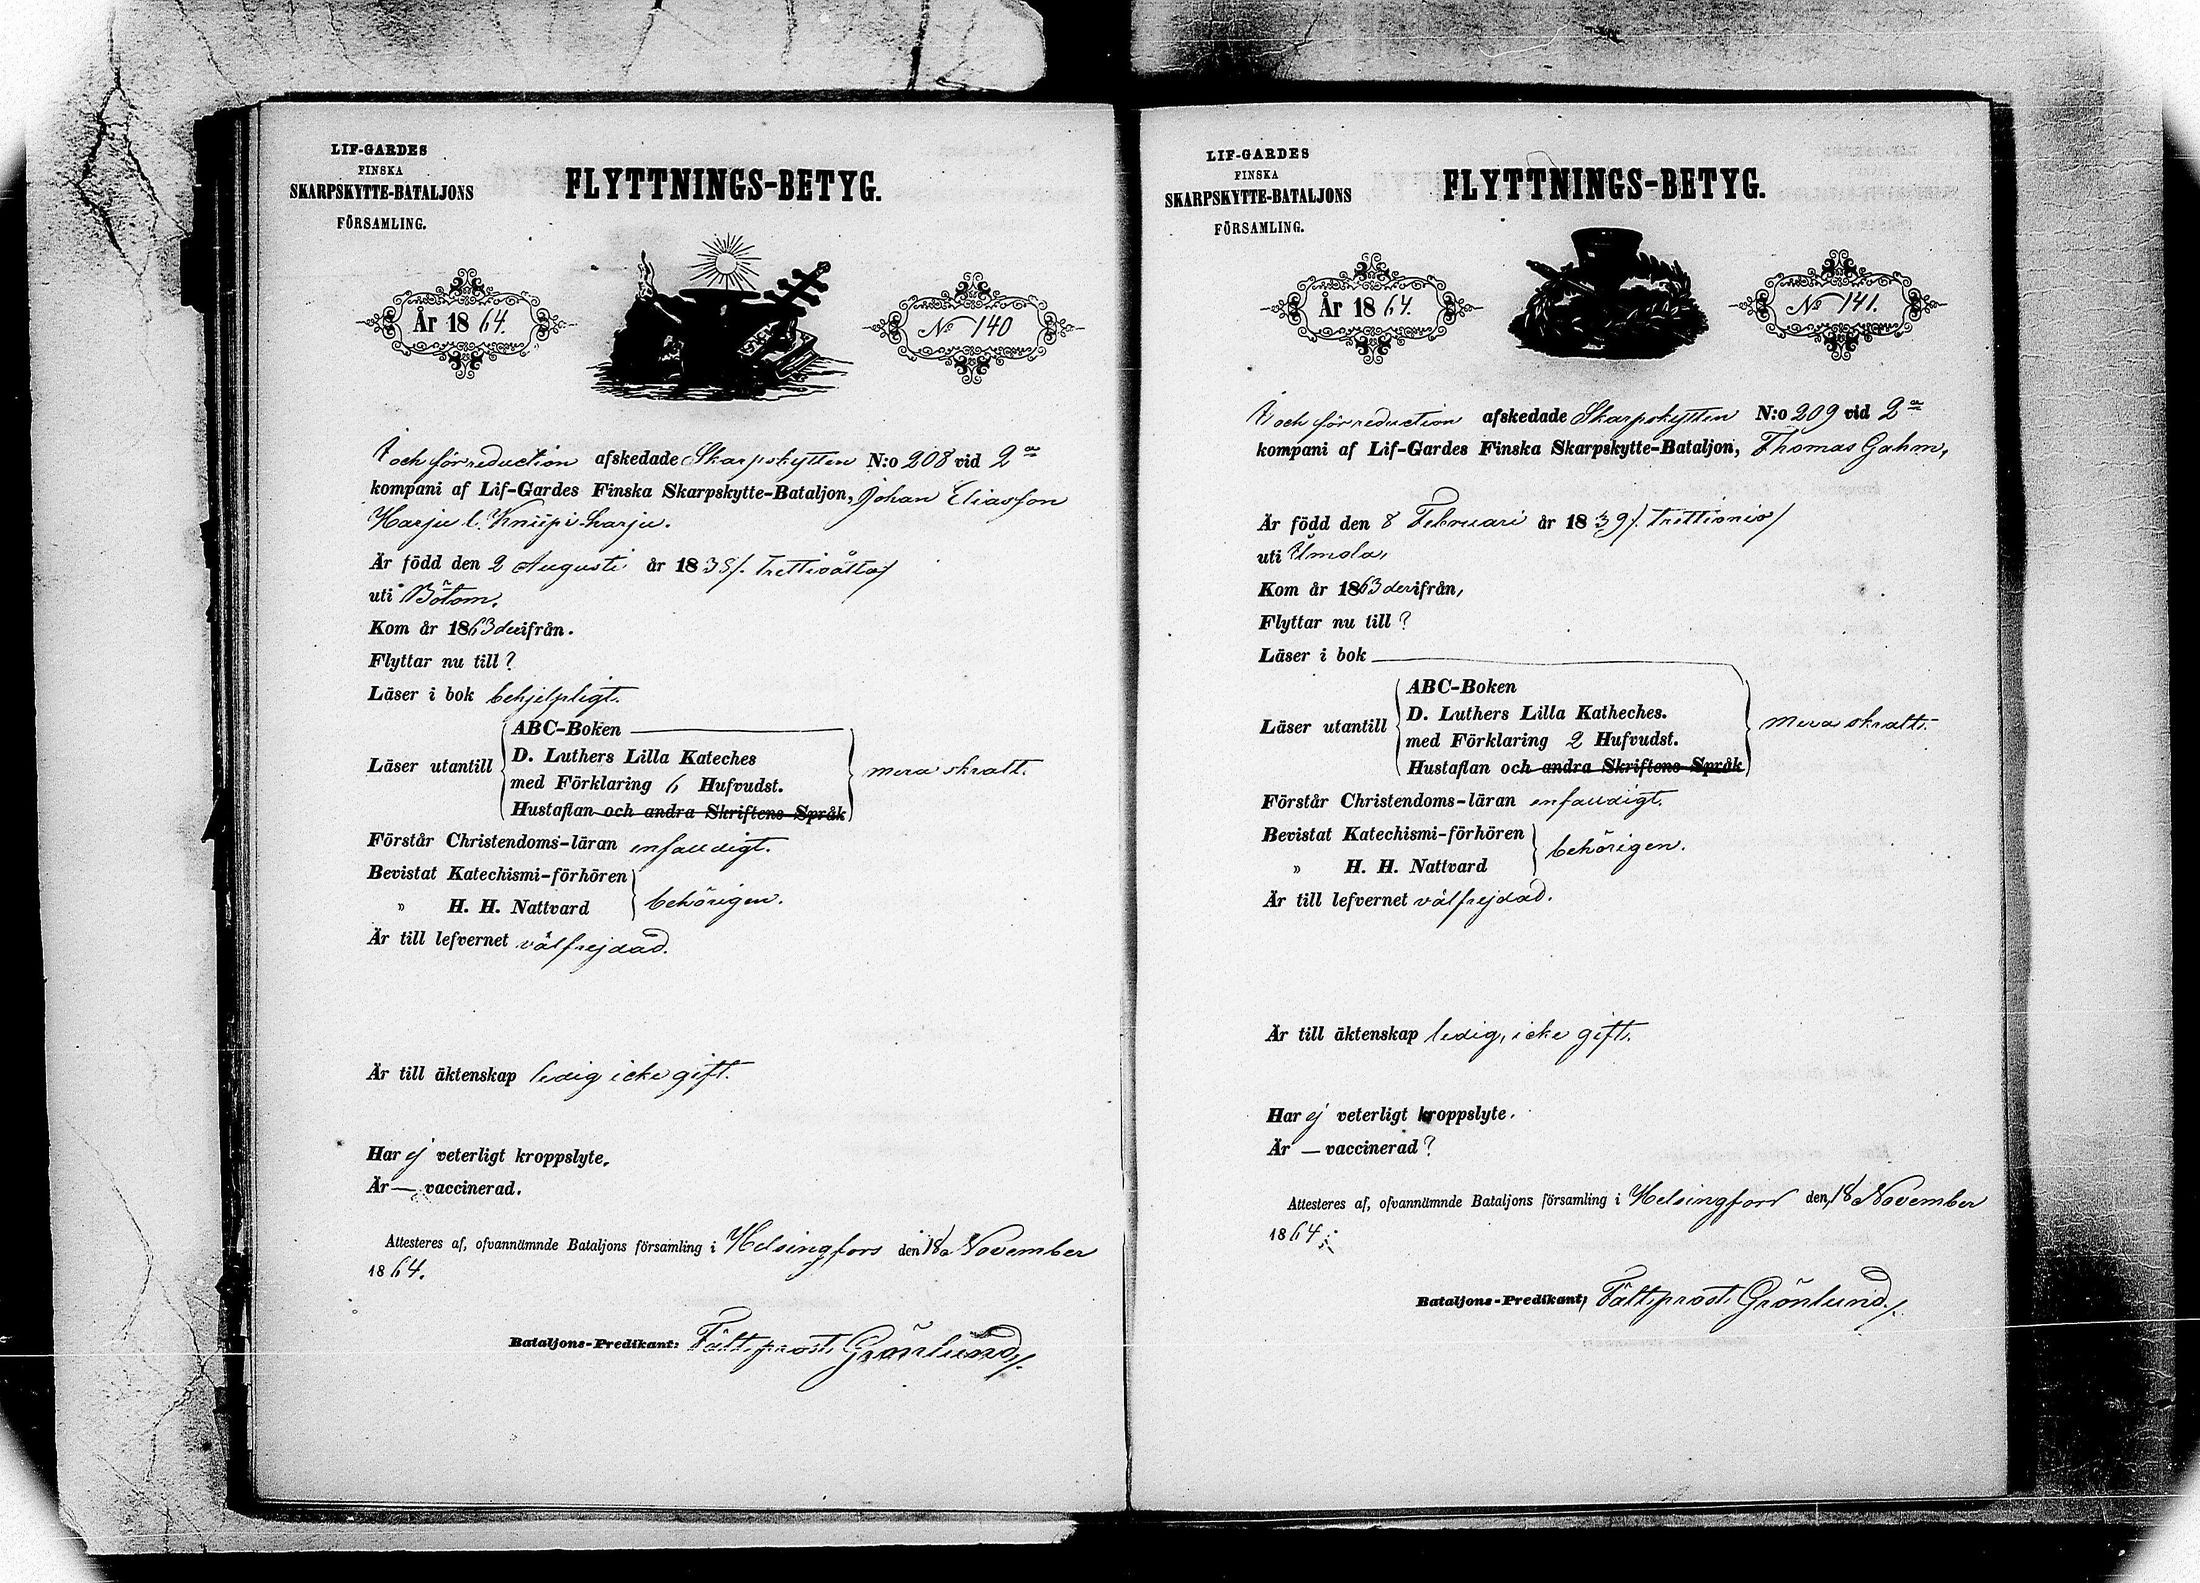 LIF-GARDES
FINSKA
SKARPSKYTTE-BATALJONS
FÖRSAMLING.
FLYTTNINGS-BETYG.
År 1864.
No 140
I och för reduction afskedade Skarpskytten N:o 208 vid 2
kompani af Lif-Gardes Finska Skarpskytte-Bataljon, Johan Eliasson
Harju l. Knüpi-harju.
Är född den 2 Augusti år 1838/. trettioåtta/
uti Bötom.
Kom år 1863 derifrån.
Flyttar nu till?
Läser i bok behjelpligt.
Läser utantill
ABC-Boken
D. Luthers Lilla Kateches
med Förklaring 6 Hufvudst.
Hustaflan och andra Skriftens Språk
mera skralt.
Förstår Christendoms-läran enfaldigt.
Bevistat Katechismi-förhören
" H. H. Nattvard
behörigen.
Är till lefvernet välfrejdad.
Är till äktenskap ledig icke gift.
Har ej veterligt kroppslyte.
Är — vaccinerad.
Attesteres af, ofvannämnde Bataljons församling i Helsingfors den 18 November
1864.
Bataljons-Predikant: Fältprost Grönlund./.
LIF-GARDES
FINSKA
SKARPSKYTTE-BATALJONS
FÖRSAMLING.
FLYTTNINGS-BETYG.
År 1864.
No 141.
I och för reduction afskedade Skarpskytten N:o 209 vid 2
kompani af Lif-Gardes Finska Skarpskytte-Bataljon, Thomas Gahm,
Är född den 8 Februari år 1839/. trettionio/
uti
Kom år 1863 derifrån,
Flyttar nu till?
Läser i bok
Läser utantill
ABC-Boken
D. Luthers Lilla Katheches.
med Förklaring 2 Hufvudst.
Hustaflan och andra Skriftens Språk
mera skralt.
Förstår Christendoms-läran enfaldigt.
Bevistat Katechismi-förhören
" H. H. Nattvard
behörigen.
Är till lefvernet välfrejdad.
Är till äktenskap ledig, icke gift.
Har ej veterligt kroppslyte.
Är — vaccinerad?
Attesteres af, ofvannämnde Bataljons församling i Helsingfors den 18 November
1864.
Bataljons-Predikant, Fältprost Grönlund./.